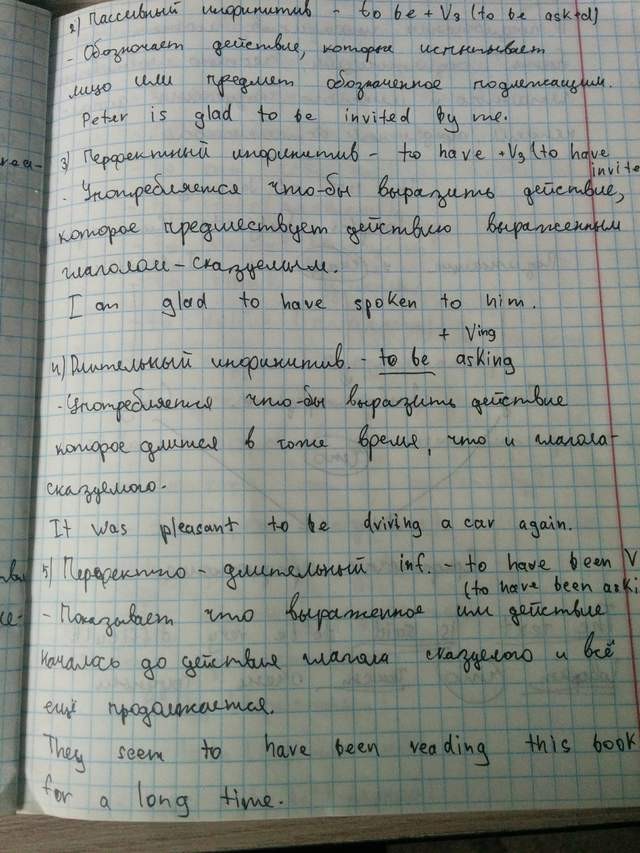 2) Пассивный инфинитив - to be + V3 (to be asked)
- Обозначает действие, которое испытывает
лицо или предмет обозначенное подлежащим.
Peter is glad to be invited by me.
3) Перфектный инфинитив - to have + V3 (to have
invite
- Употребляется что-бы выразить действие,
которое предшествует действию выраженным
глаголом - сказуемым.
I am glad to have spoken to him.
+ Ving
4) Длительный инфинитив. - to be asking
- Употребляется что-бы выразить действие
которое длится в тоже время, что и глагола-
сказуемого.
It was pleasant to be driving a car again.
5) Перфектно - длительный inf. - to have been V
(to have been aski
- Показывает что выраженное им действие
началось до действия глагола сказуелого и всё
ещё продолжается.
They seem to have been reading this book
for a long time.